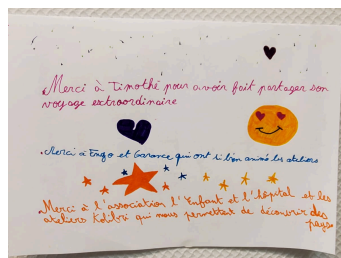 Merci à Timothé pour avoir fait partager son
voyage extraordinaire
Merci à Enzo et Garance qui ont si bien animé les ateliers
Merci à l'association l'Enfant et l'hôpital et les
ateliers Kolibri qui nous permettent de découvrir des
pays